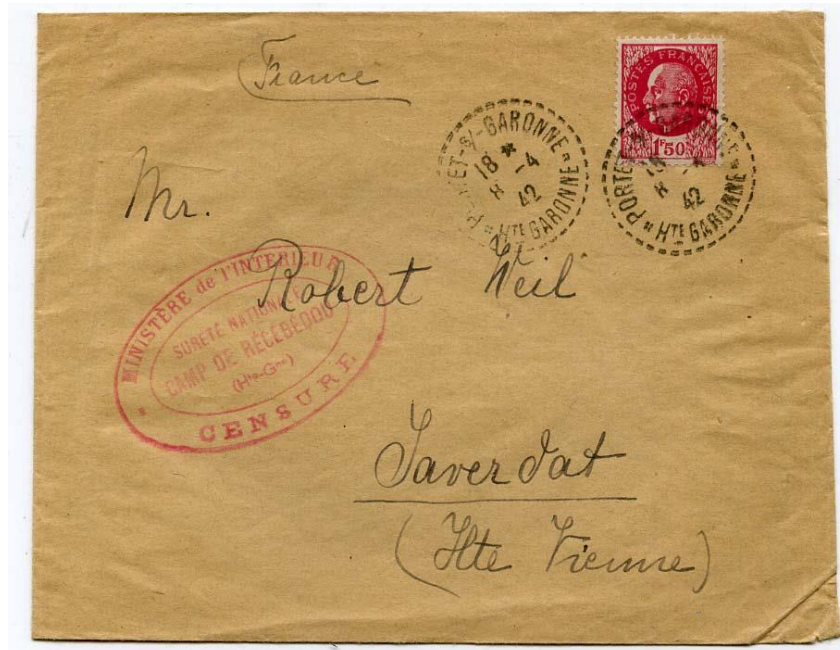 France
POSTES FRANÇAISES
1F50
PORTET-S/-GARONNE
18 * -4
42
HTE GARONNE
PORTET-S/-GARONNE
18 -4
42
HTE GARONNE
Mr.
Robert Weil
MINISTÈRE de l'INTÉRIEUR
SURETÉ NATIONALE
CAMP DE RÉCÉBÉDOU
(Hte-Gne)
CENSURE
Javerdat
(Hte Vienne)